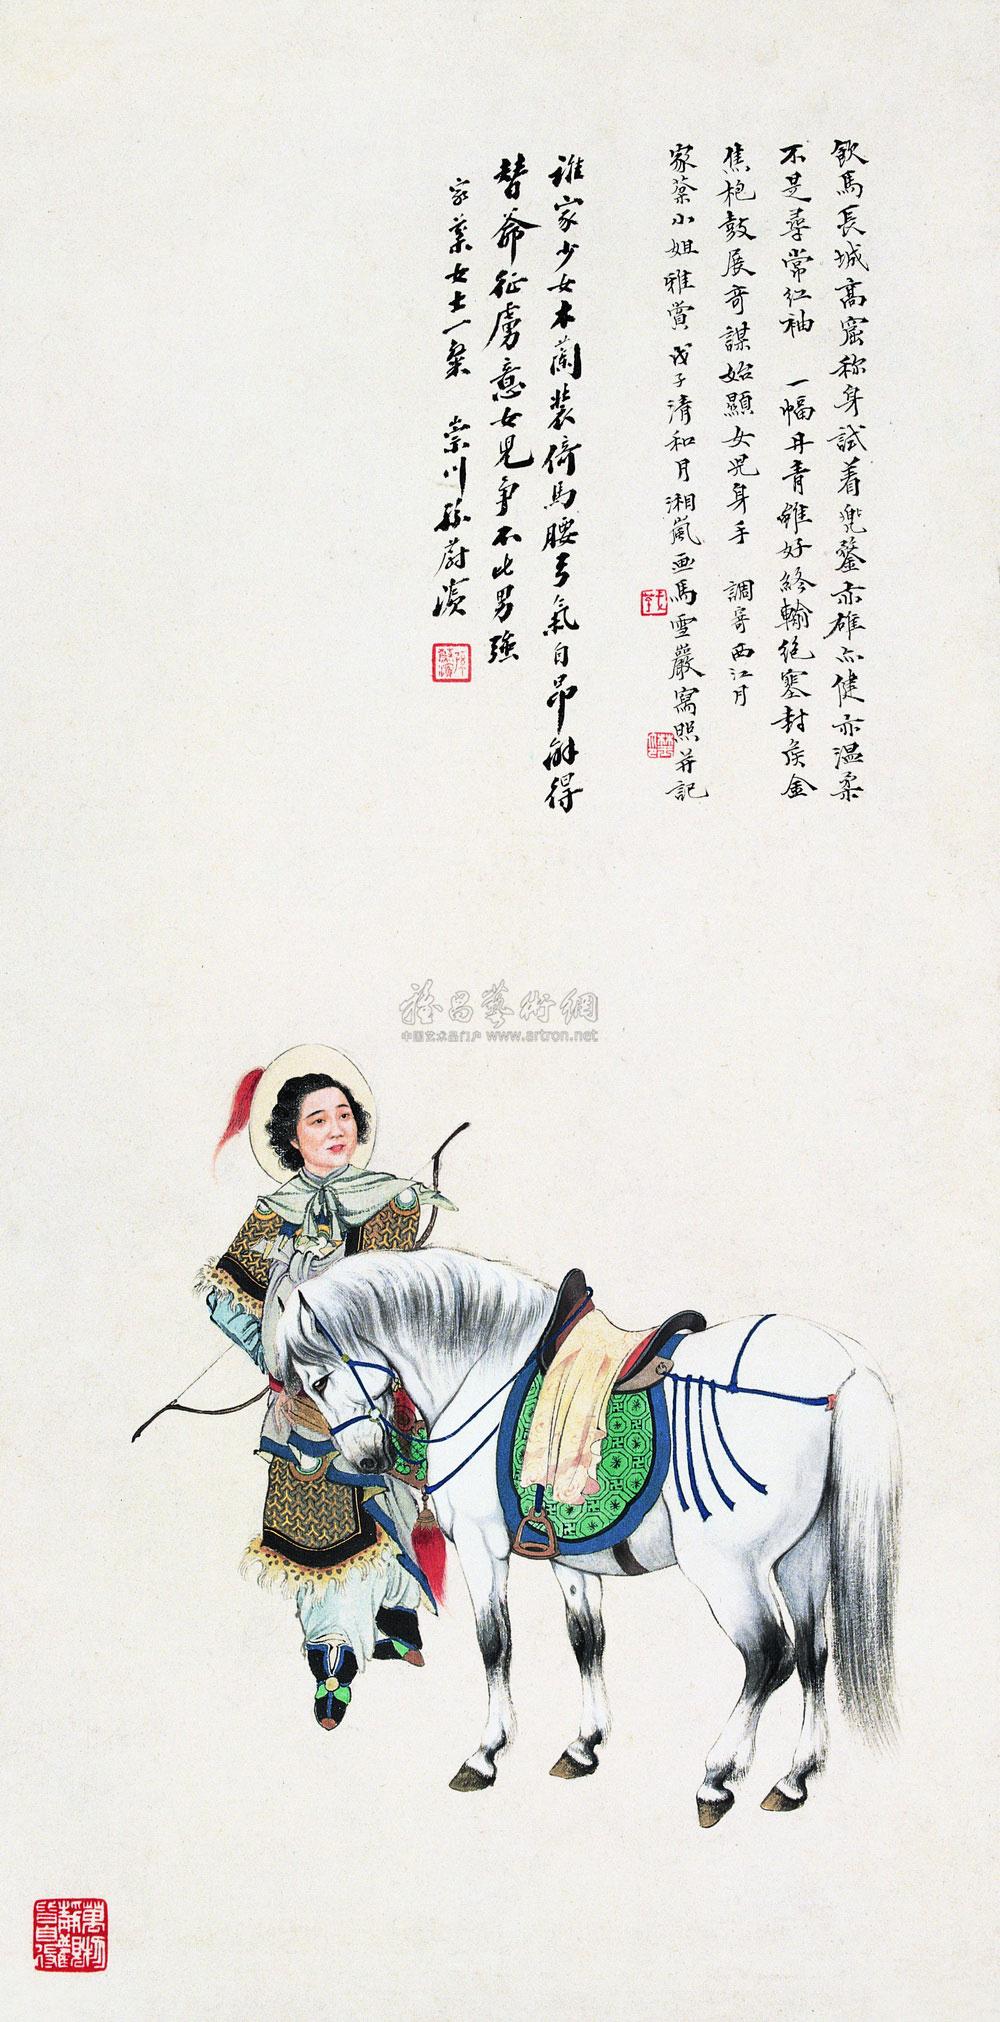 飲馬長城高窟称身試着兜鍪亦雄亦健亦温柔
不是尋常红袖 一幅丹青雖好終輸绝塞封侯金
焦枹鼓展奇謀始顯女児身手 調寄西江月
家棻小姐雅賞 戊子清和月湘嵐画馬雪巖寫照并記
誰家少女木蘭裝倚馬腰弓氣自昂解得
替爺征虜意女児争不比男強
家棻女士一粲 崇川孫蔚濱
雅昌藝術網
中国艺术品门户 www.artron.net
萬物
静觀
皆自得